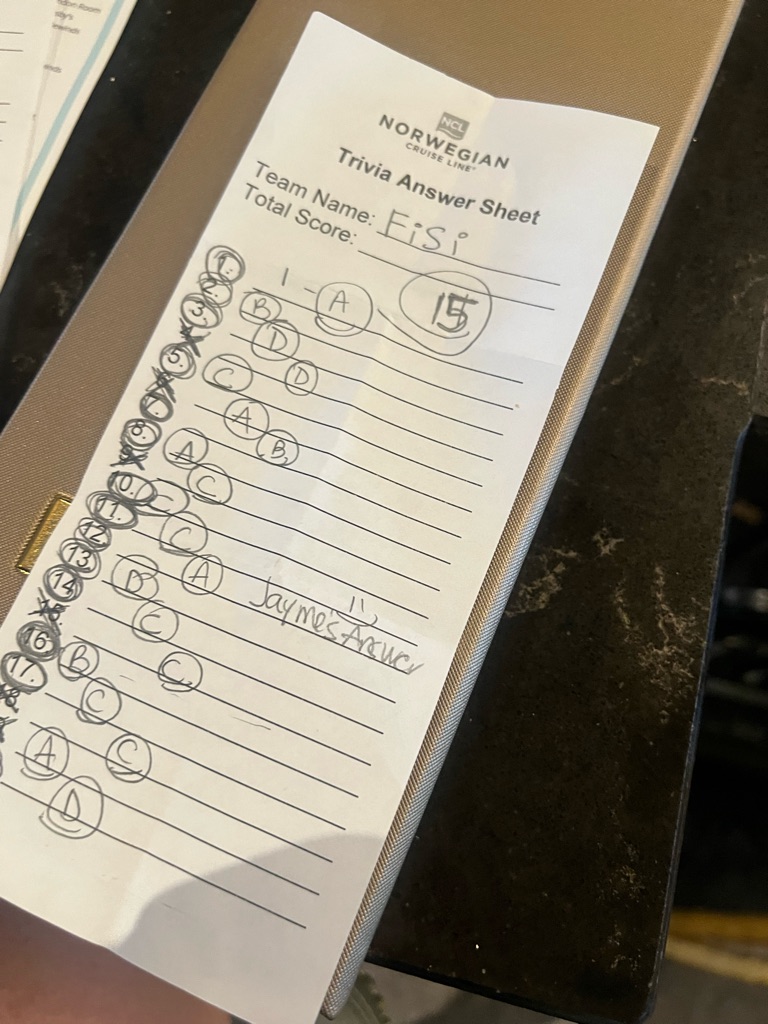 NCL
NORWEGIAN
CRUISE LINE
Trivia Answer Sheet
Team Name: EiSi
Total Score:
1 - A 15
1.
2. B
3. D
D
5. C
A
7. B
8. A
C
10. C
11. C
12. A Jayme's Answer
13. B
14. C
C
16. B
17. C
C
A
D